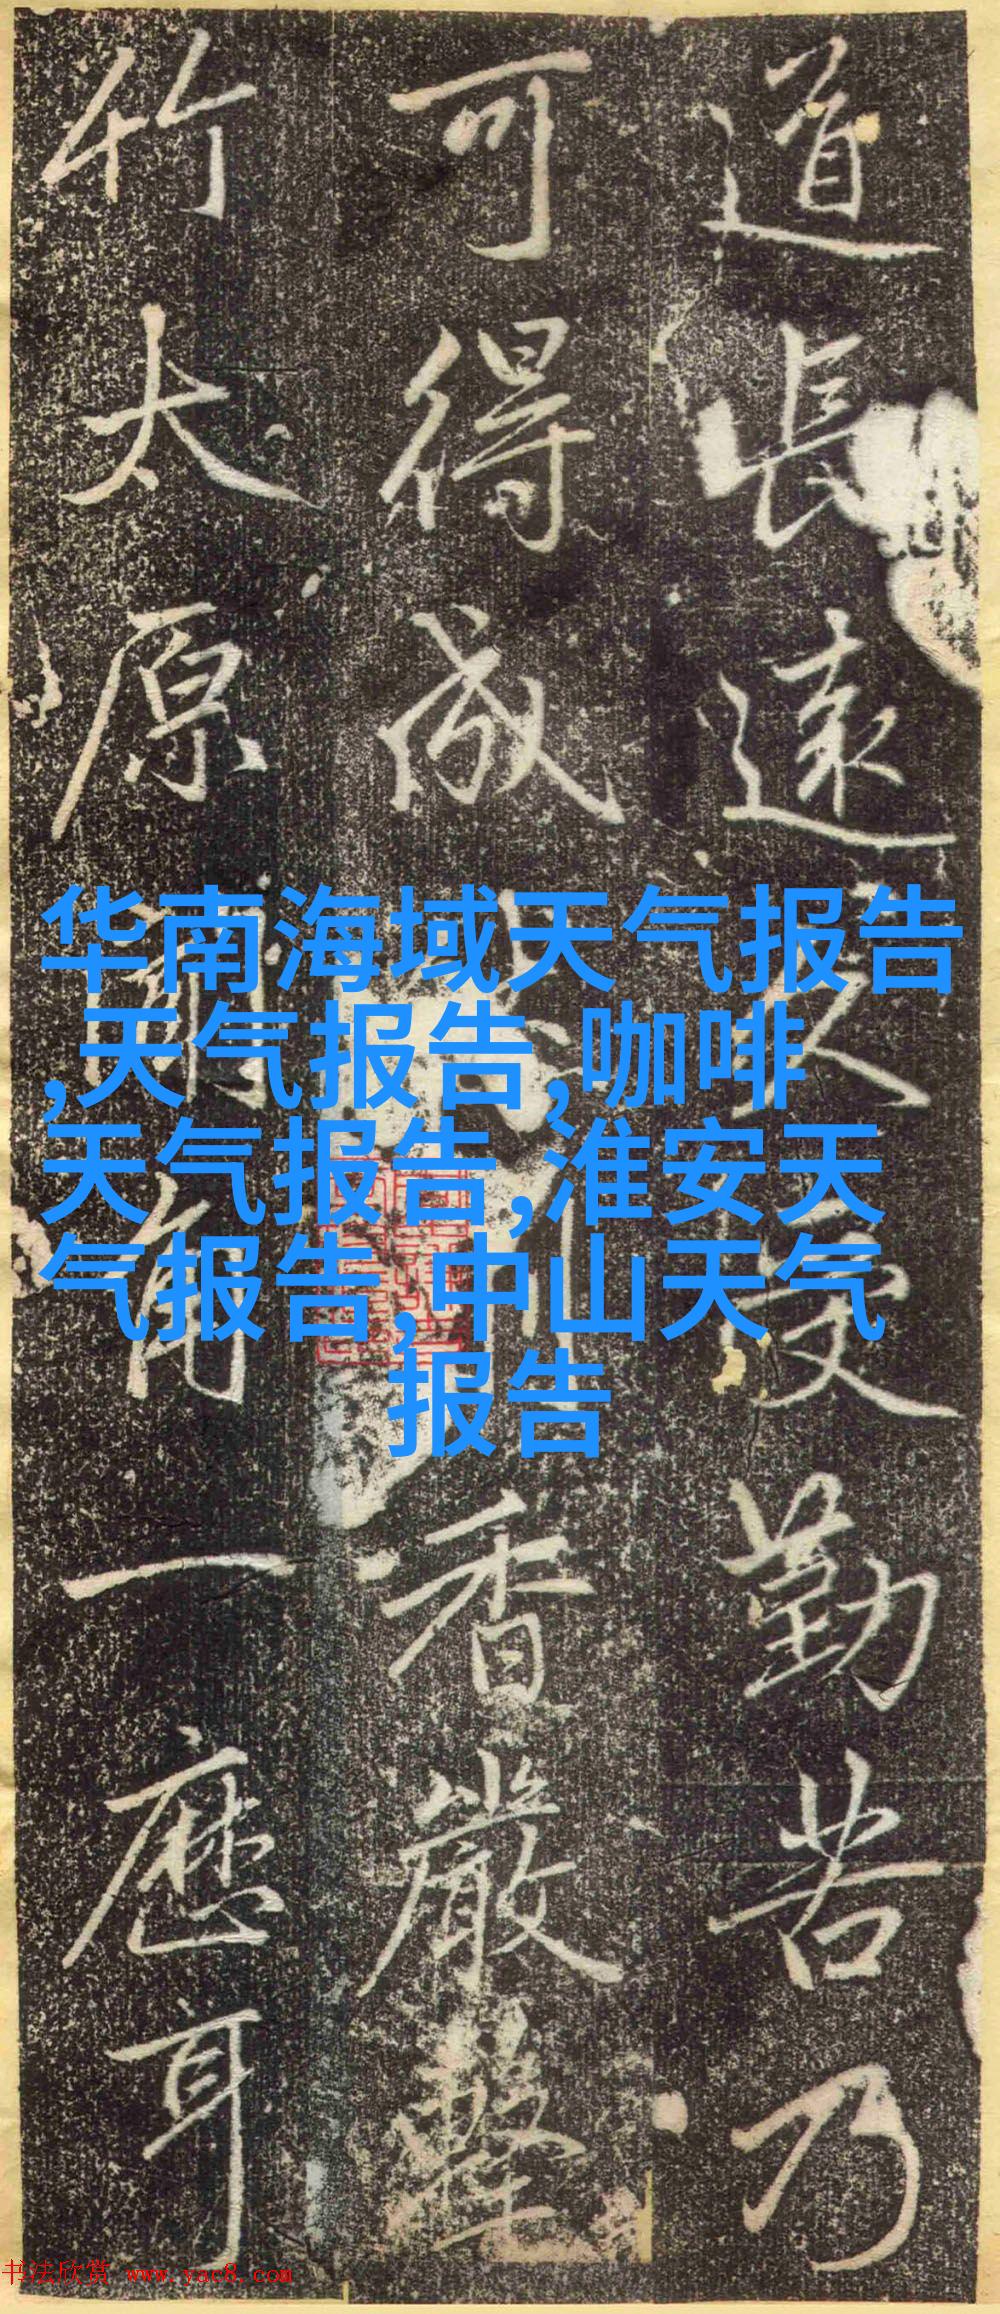 道長遠久受勤苦乃
可得成香嚴擊
竹太原聞角一應耳
华南海域天气报告
,天气报告,咖啡
天气报告,淮安天
气报告,中山天气
报告
书法欣赏 www.yac8.com